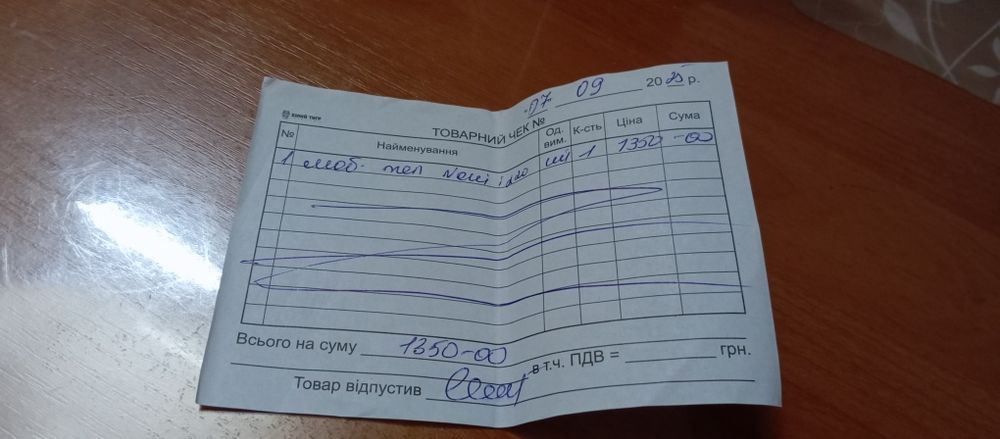 07 09 2025 р.
ЮНИЙ ТИГР
ТОВАРНИЙ ЧЕК №
№ Найменування Од. вим. К-сть Ціна Сума
1 моб. тел Nomi i220 шт 1 1350 -00
Всього на суму 1350-00
в т.ч. ПДВ = грн.
Товар відпустив